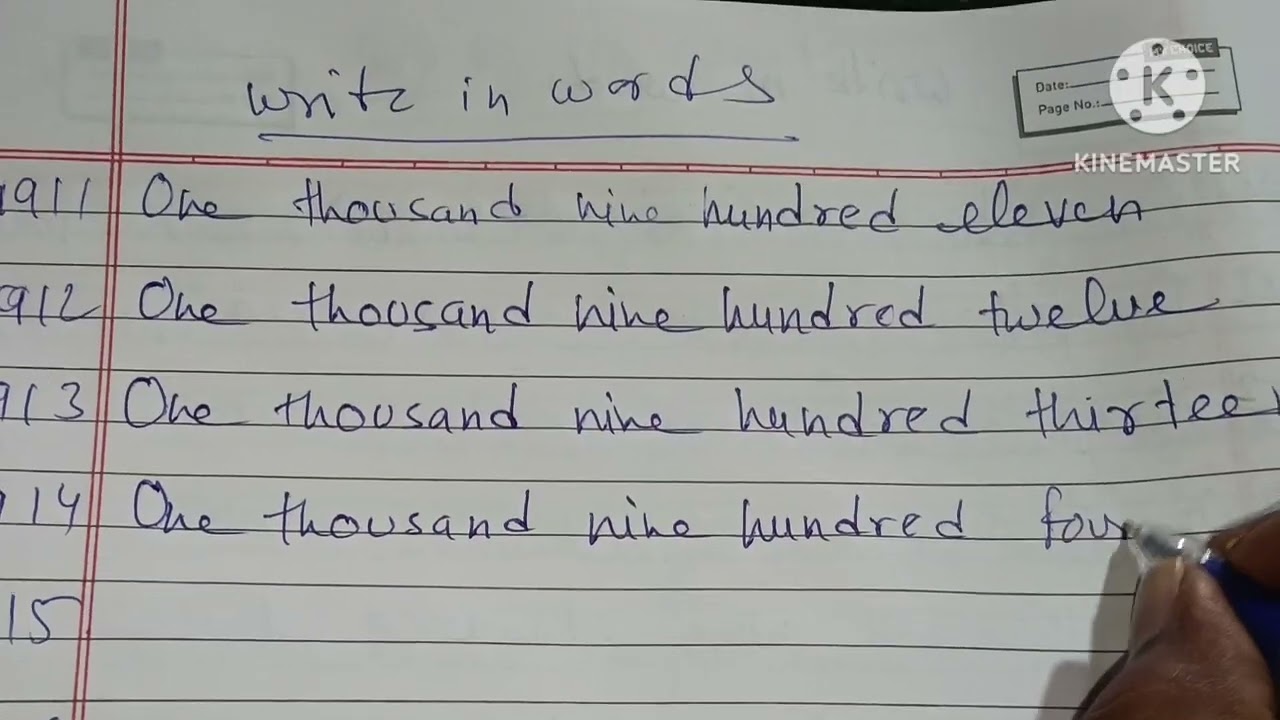 Write in words
MY CHOICE
Date:
Page No.:
K
KINEMASTER
1911 One thousand nine hundred eleven
912 One thousand nine hundred twelve
913 One thousand nine hundred thirteen
14 One thousand nine hundred four
15